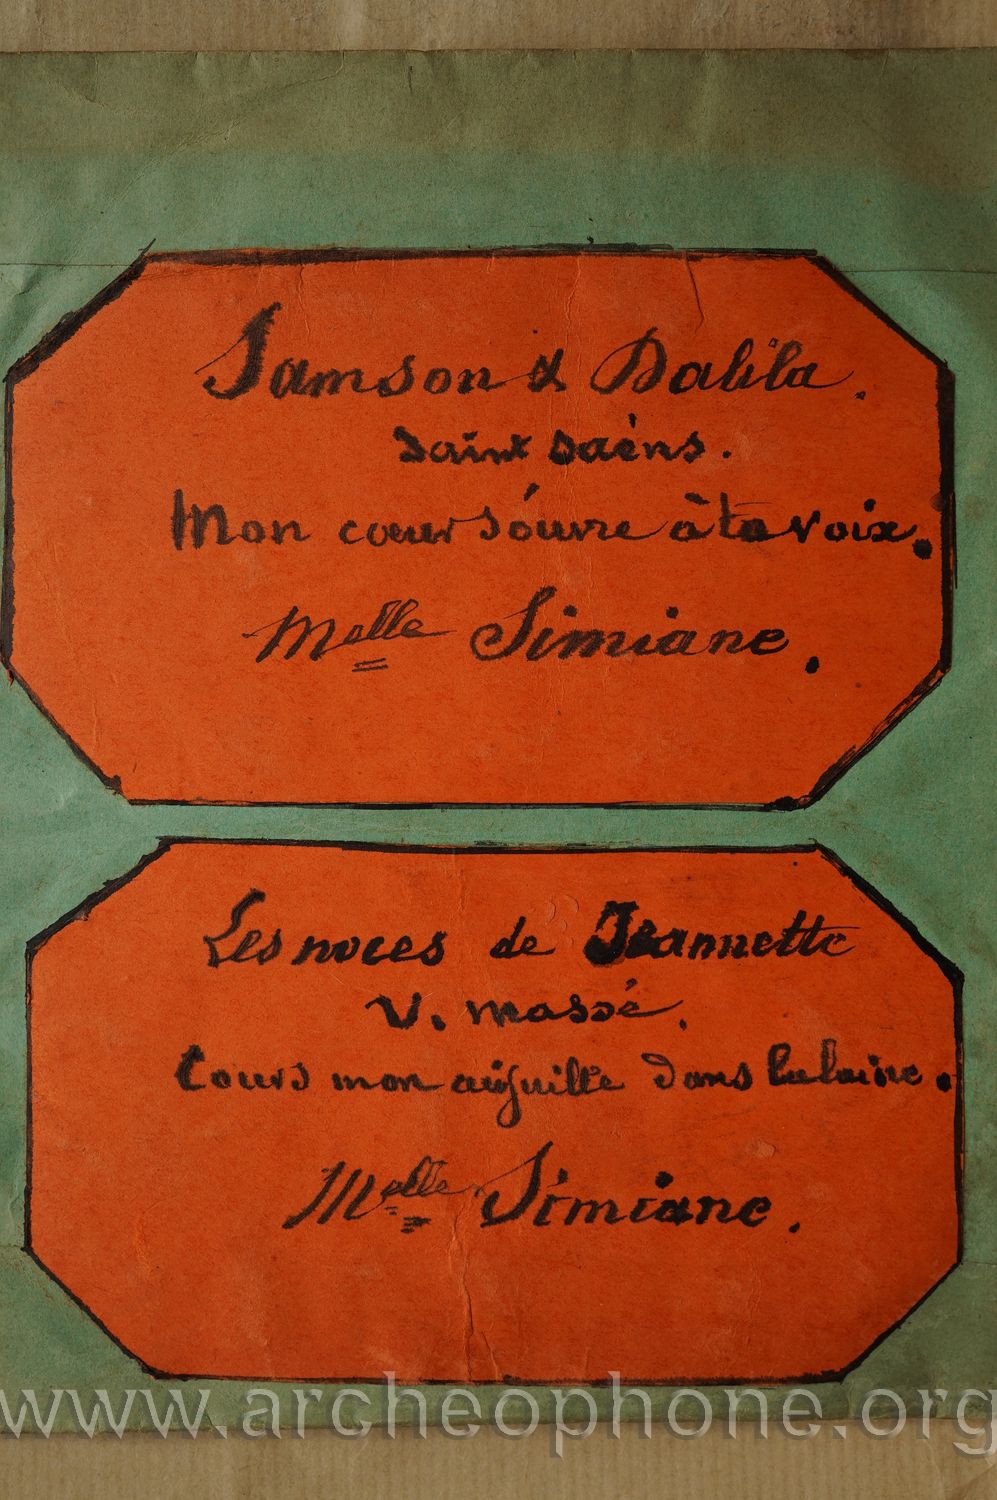 Samson & Dalila.
Saint Saëns.
Mon cœur s'ouvre à ta voix.
Melle Simiane.
Les noces de Jeannette
V. Massé.
Cours mon aiguille dans la laine.
Melle Simiane.
www.archeophone.org